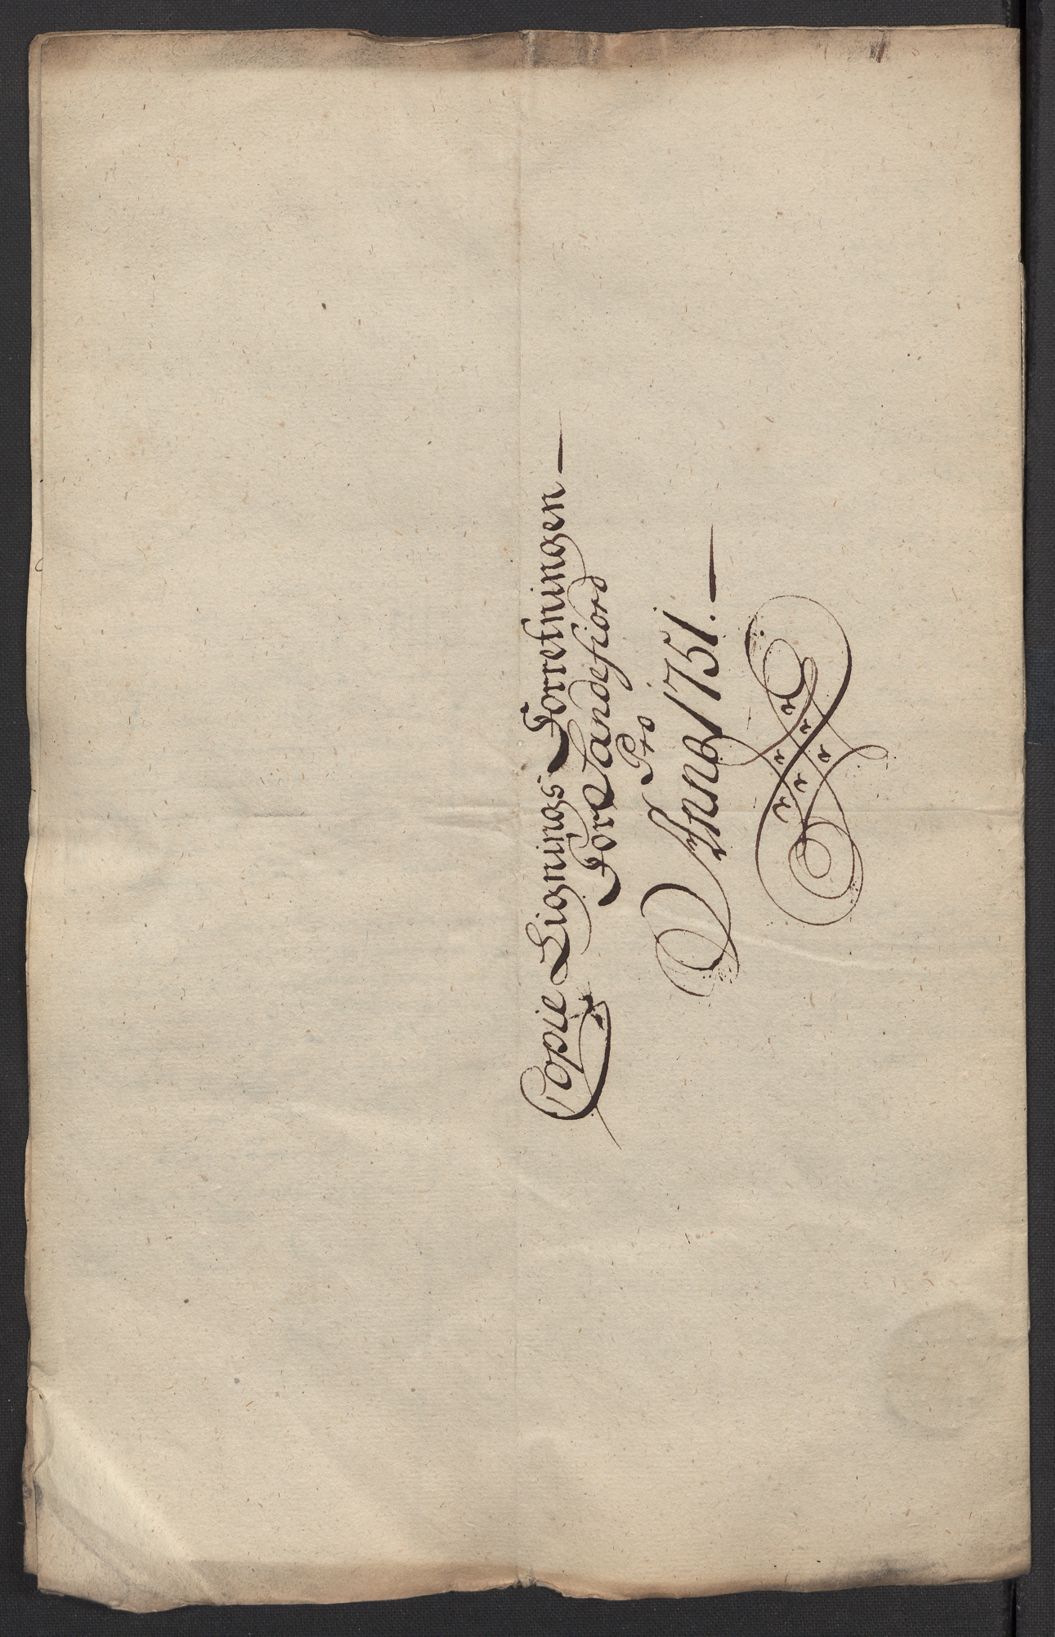 Copie Lignings Forretningen
For Sandefiord
Pro
Anno 1751.